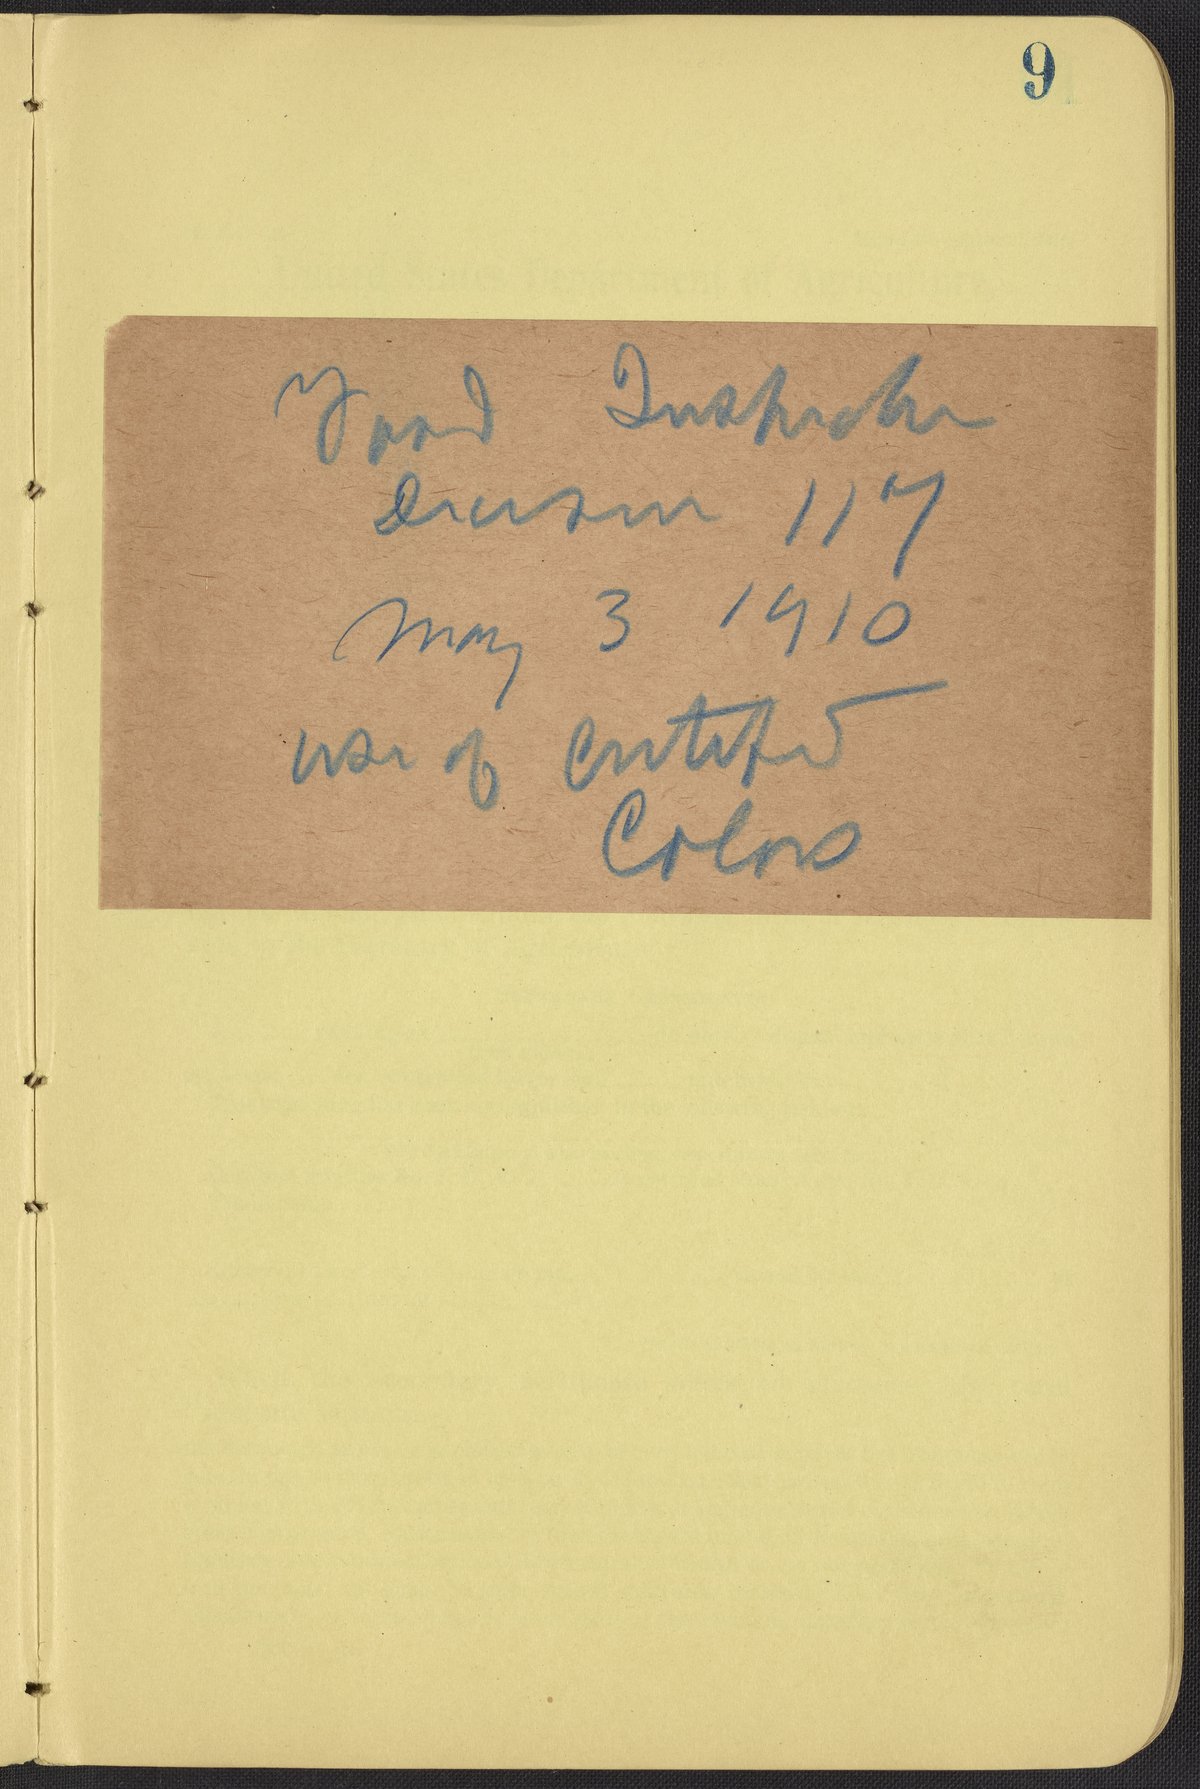 9
Food Inspection
Decision 117
May 3 1910
use of Certified
Colors